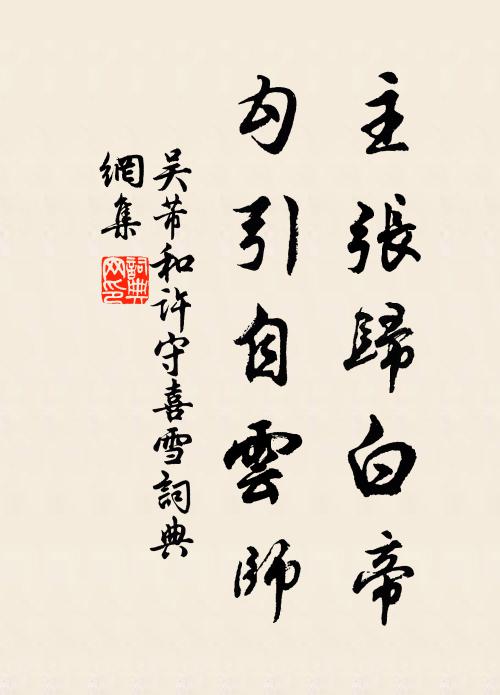 主張歸白帝
勾引自雲師
吴芾和許守喜雪詞典
網集
詞典
网印